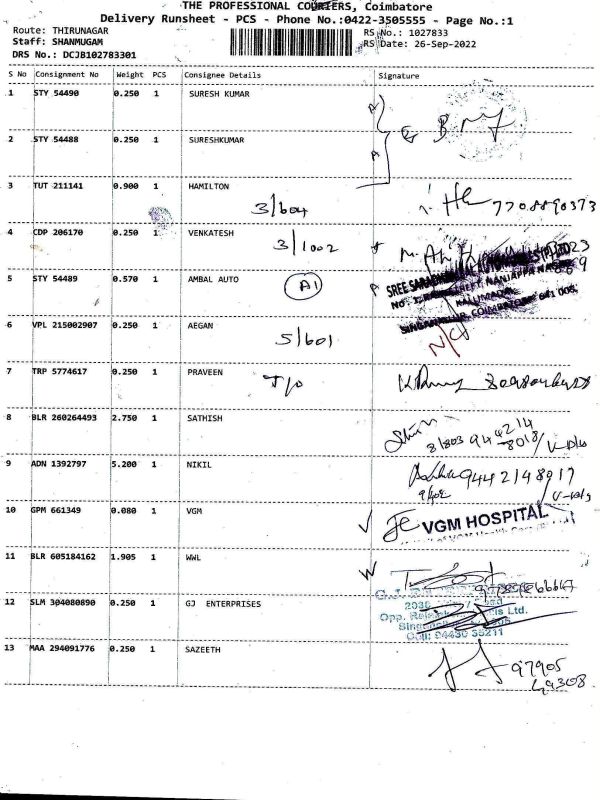 THE PROFESSIONAL COURIERS, Coimbatore
Delivery Runsheet - PCS - Phone No.:0422-3505555 - Page No.:1
Route: THIRUNAGAR
Staff: SHANMUGAM
DRS No.: DCJB102783301
RS No.: 1027833
RS Date: 26-Sep-2022
S No Consignment No Weight PCS Consignee Details Signature
1 STY 54490 0.250 1 SURESH KUMAR
2 STY 54488 0.250 1 SURESHKUMAR
3 TUT 211141 0.900 1 HAMILTON
3/604 7708890373
4 CDP 206170 0.250 1 VENKATESH
3/1002
5 STY 54489 0.570 1 AMBAL AUTO A1
6 VPL 215002907 0.250 1 AEGAN
5/601 N/C
7 TRP 5774617 0.250 1 PRAVEEN
T/O
8 BLR 260264493 2.750 1 SATHISH
9 ADN 1392797 5.200 1 NIKIL
9442148917
9/402
10 GPM 661349 0.080 1 VGM
VGM HOSPITAL
11 BLR 605184162 1.905 1 WWL
12 SLM 304080890 0.250 1 GJ ENTERPRISES
13 MAA 294091776 0.250 1 SAZEETH
97905